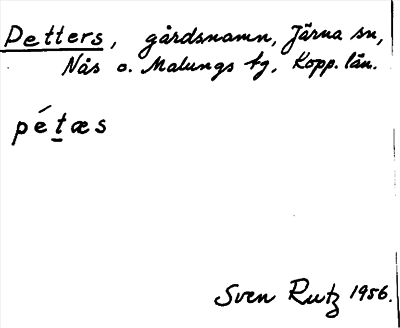 Petters, gårdsnamn, Järna sn,
Nås o. Malungs tg, Kopp. län.
pétæs
Sven Rutz 1956.